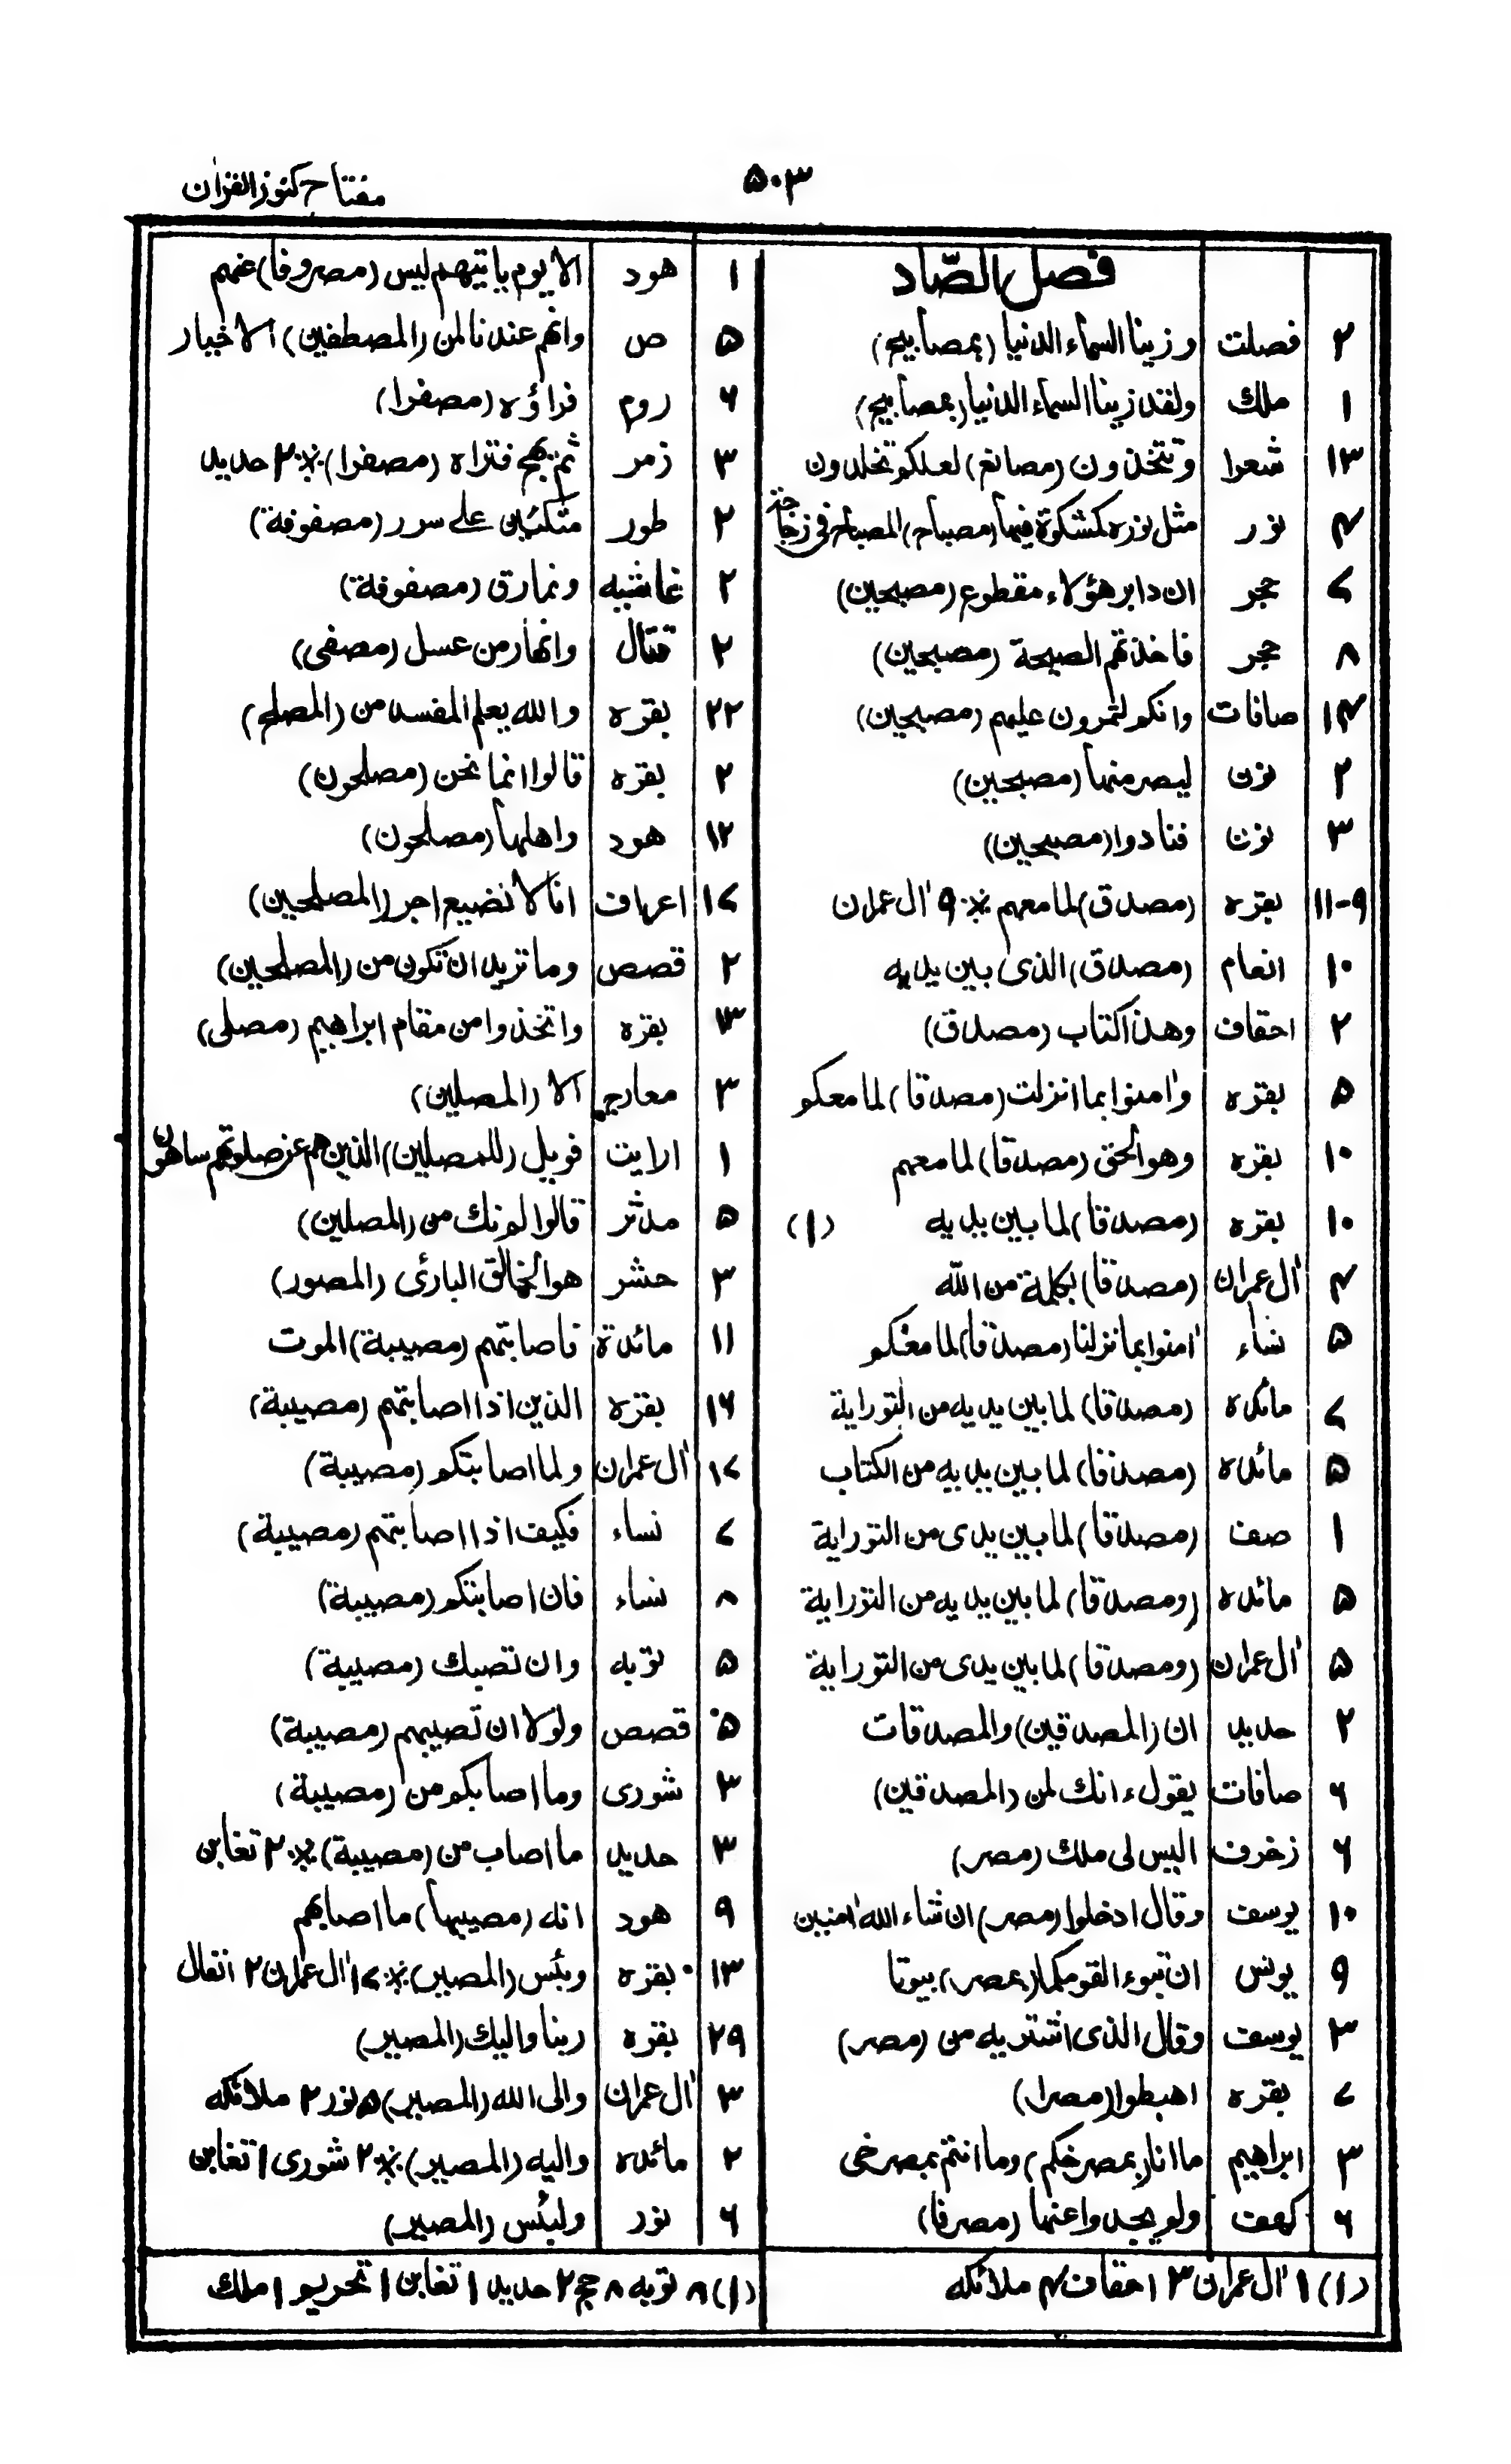 ۵۰۳
مفتاح کنوز القرآن
فصل الصّاد
۲ فصلت وزینا السماء الدنیا (بمصابیح)
۱ ملك ولقد زینا السماء الدنیا (بمصابیح)
۱۳ شعرا وتتخذون (مصانع) لعلکم تخلدون
۴ نور مثل نوره کمشکوة فیها (مصباح) المصباح فی زجاجة
۷ حجر ان دابر هؤلاء مقطوع (مصبحین)
۸ حجر فاخذتهم الصیحة (مصبحین)
۱۴ صافات وانکم لتمرون علیهم (مصبحین)
۲ نون لیصرمنها (مصبحین)
۳ نون فنادوا (مصبحین)
۹-۱۱ بقره (مصدق) لما معهم ※ ۹ اٰل عمران
۱۰ انعام (مصدق) الذی بین یدیه
۲ احقاف وهذا کتاب (مصدق)
۵ بقره واٰمنوا بما انزلت (مصدقا) لما معکم
۱۰ بقره وهو الحق (مصدقا) لما معهم
۱۰ بقره (مصدقا) لما بین یدیه (۱)
۴ اٰل عمران (مصدقا) بکلمة من اللّه
۵ نساء اٰمنوا بما نزلنا (مصدقا) لما معکم
۷ مائده (مصدقا) لما بین یدیه من التورایة
۵ مائده (مصدقا) لما بین یدیه من الکتاب
۱ صف (مصدقا) لما بین یدی من التورایة
۵ مائده (ومصدقا) لما بین یدیه من التورایة
۵ اٰل عمران (ومصدقا) لما بین یدی من التورایة
۲ حدید ان (المصدقین) والمصدقات
۲ صافات یقول ءانك لمن (المصدقین)
۶ زخرف الیس لی ملك (مصر)
۱۰ یوسف وقال ادخلوا (مصر) ان شاء الله اٰمنین
۹ یونس ان تبوء القومکما (بمصر) بیوتا
۳ یوسف وقال الذی اشتریه من (مصر)
۷ بقره اهبطوا (مصرا)
۳ ابراهیم ما انا (بمصرخکم) وما انتم بمصرخی
۶ کهف ولم یجدوا عنها (مصرفا)
(۱) ۱ اٰل عمران ۳ احقاف ۴ ملائکه
۱ هود الا یوم یاتیهم لیس (مصروفا) عنهم
۵ ص وانهم عندنا لمن (المصطفین) الاخیار
۶ روم فراؤه (مصفرا)
۳ زمر ثم یهیج فتراه (مصفرا) ※ ۲ حدید
۲ طور متکئین علی سرر (مصفوفة)
۲ غاشیه ونمارق (مصفوفة)
۲ قتال وانهار من عسل (مصفی)
۲۲ بقره والله یعلم المفسد من (المصلح)
۲ بقره قالوا انما نحن (مصلحون)
۱۲ هود واهلها (مصلحون)
۱۷ اعراف انا لا نضیع اجر (المصلحین)
۲ قصص وما ترید ان تکون من (المصلحین)
۱۳ بقره واتخذوا من مقام ابراهیم (مصلی)
۳ معارج الا (المصلین)
۱ ارایت فویل (للمصلین) الذین هم عن صلوتهم ساهون
۵ مدثر قالوا لم نك من (المصلین)
۳ حشر هو الخالق البارئ (المصور)
۱۱ مائدة فاصابتهم (مصیبة) الموت
۱۶ بقره الذین اذا اصابتهم (مصیبة)
۱۷ اٰل عمران ولما اصابتکم (مصیبة)
۷ نساء فکیف اذا اصابتهم (مصیبة)
۸ نساء فان اصابتکم (مصیبة)
۵ توبه وان تصبك (مصیبة)
۵ قصص ولولا ان تصیبهم (مصیبة)
۳ شوری وما اصابکم من (مصیبة)
۳ حدید ما اصاب من (مصیبة) ※ ۲ تغابن
۹ هود انه (مصیبها) ما اصابهم
۱۳ بقره وبئس (المصیر) ※ ۱۷ اٰل عمران ۲ انفال
۲۹ بقره ربنا والیك (المصیر)
۳ اٰل عمران والی الله (المصیر) ۵ نور ۲ ملائکه
۲ مائده والیه (المصیر) ※ ۲ شوری ۱ تغابن
۶ نور ولبئس (المصیر)
(۱) ۸ توبه ۸ حج ۲ حدید ۱ تغابن ۱ تحریم ۱ ملك